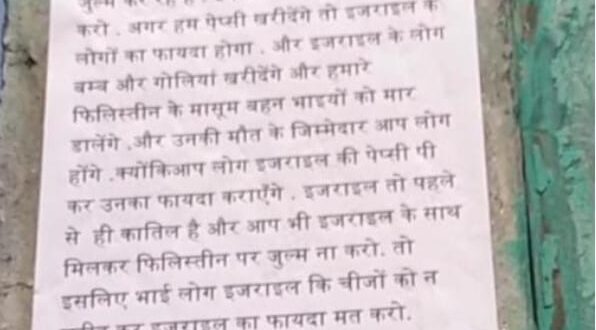 जुल्म कर रहे
करो . अगर हम पेप्सी खरीदेंगे तो इजराइल के
लोगों का फायदा होगा . और इजराइल के लोग
बम्ब और गोलियां खरीदेंगे और हमारे
फिलिस्तीन के मासूम बहन भाइयों को मार
डालेंगे .और उनकी मौत के जिम्मेदार आप लोग
होंगे .क्योंकिआप लोग इजराइल की पेप्सी पी
कर उनका फायदा कराएँगे . इजराइल तो पहले
से ही कातिल है और आप भी इजराइल के साथ
मिलकर फिलिस्तीन पर जुल्म ना करो. तो
इसलिए भाई लोग इजराइल कि चीजों को न
खरीद कर इजराइल का फायदा मत करो.